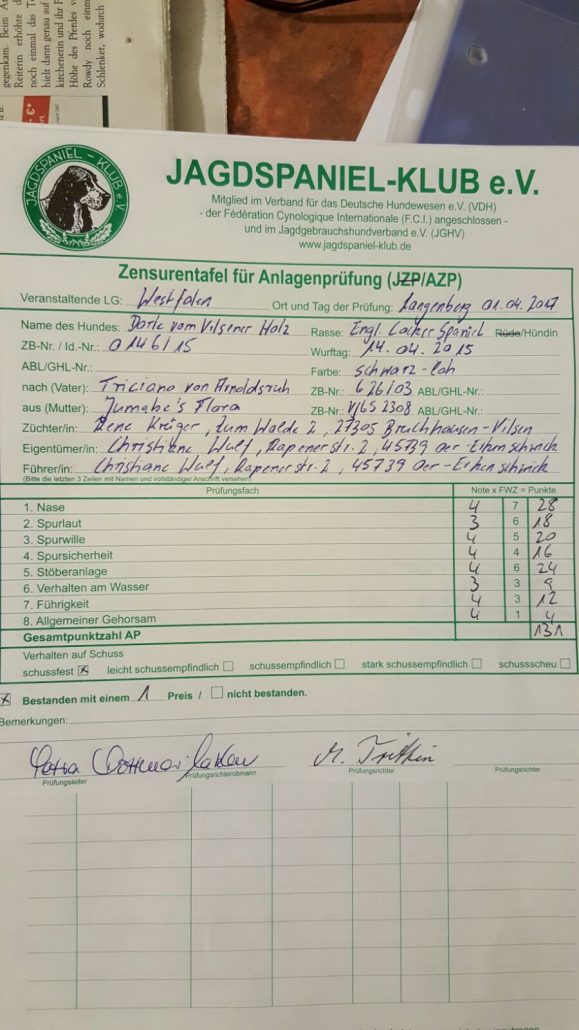 gegenkam. Beim
Reiterin erhöhte
noch einmal das
hielt dann genau auf
kirchenerin und ihr
Höhe des Pferdes
Rowdy noch einm
Schlenker, wodurch
JAGDSPANIEL - KLUB e.V.
JAGDSPANIEL-KLUB e.V.
Mitglied im Verband für das Deutsche Hundewesen e.V. (VDH)
- der Fédération Cynologique Internationale (F.C.I.) angeschlossen -
und im Jagdgebrauchshundverband e.V. (JGHV)
www.jagdspaniel-klub.de
Zensurentafel für Anlagenprüfung (JZP/AZP)
Veranstaltende LG: Westfalen Ort und Tag der Prüfung: Langenberg 01.04.2017
Name des Hundes: Dörte vom Vilsener Holz Rasse: Engl. Cocker Spaniel Rüde/Hündin
ZB-Nr. / Id.-Nr.: 0146/15 Wurftag: 14.04.2015
ABL/GHL-Nr.: Farbe: schwarz-loh
nach (Vater): Triciano von Arnoldsruh ZB-Nr.: 626/03 ABL/GHL-Nr.:
aus (Mutter): Jumahe's Flora ZB-Nr.: VJ6S 2308 ABL/GHL-Nr.:
Züchter/in: Rene Krüger, zum Walde 2, 27305 Bruchhausen-Vilsen
Eigentümer/in: Christiane Wulf, Rapenerstr. 2, 45739 Oer-Erkenschwick
Führer/in: Christiane Wulf, Rapenerstr. 2, 45739 Oer-Erkenschwick
(Bitte die letzten 3 Zeilen mit Namen und vollständiger Anschrift versehen)
Prüfungsfach Note x FWZ = Punkte
1. Nase 4 7 28
2. Spurlaut 3 6 18
3. Spurwille 4 5 20
4. Spursicherheit 4 4 16
5. Stöberanlage 4 6 24
6. Verhalten am Wasser 3 3 9
7. Führigkeit 4 3 12
8. Allgemeiner Gehorsam 4 1 4
Gesamtpunktzahl AP 131
Verhalten auf Schuss
schussfest ☒ leicht schussempfindlich ☐ schussempfindlich ☐ stark schussempfindlich ☐ schussscheu ☐
☒ Bestanden mit einem 1 Preis / ☐ nicht bestanden.
Bemerkungen:
Prüfungsleiter Prüfungsrichterobmann Prüfungsrichter Prüfungsrichter